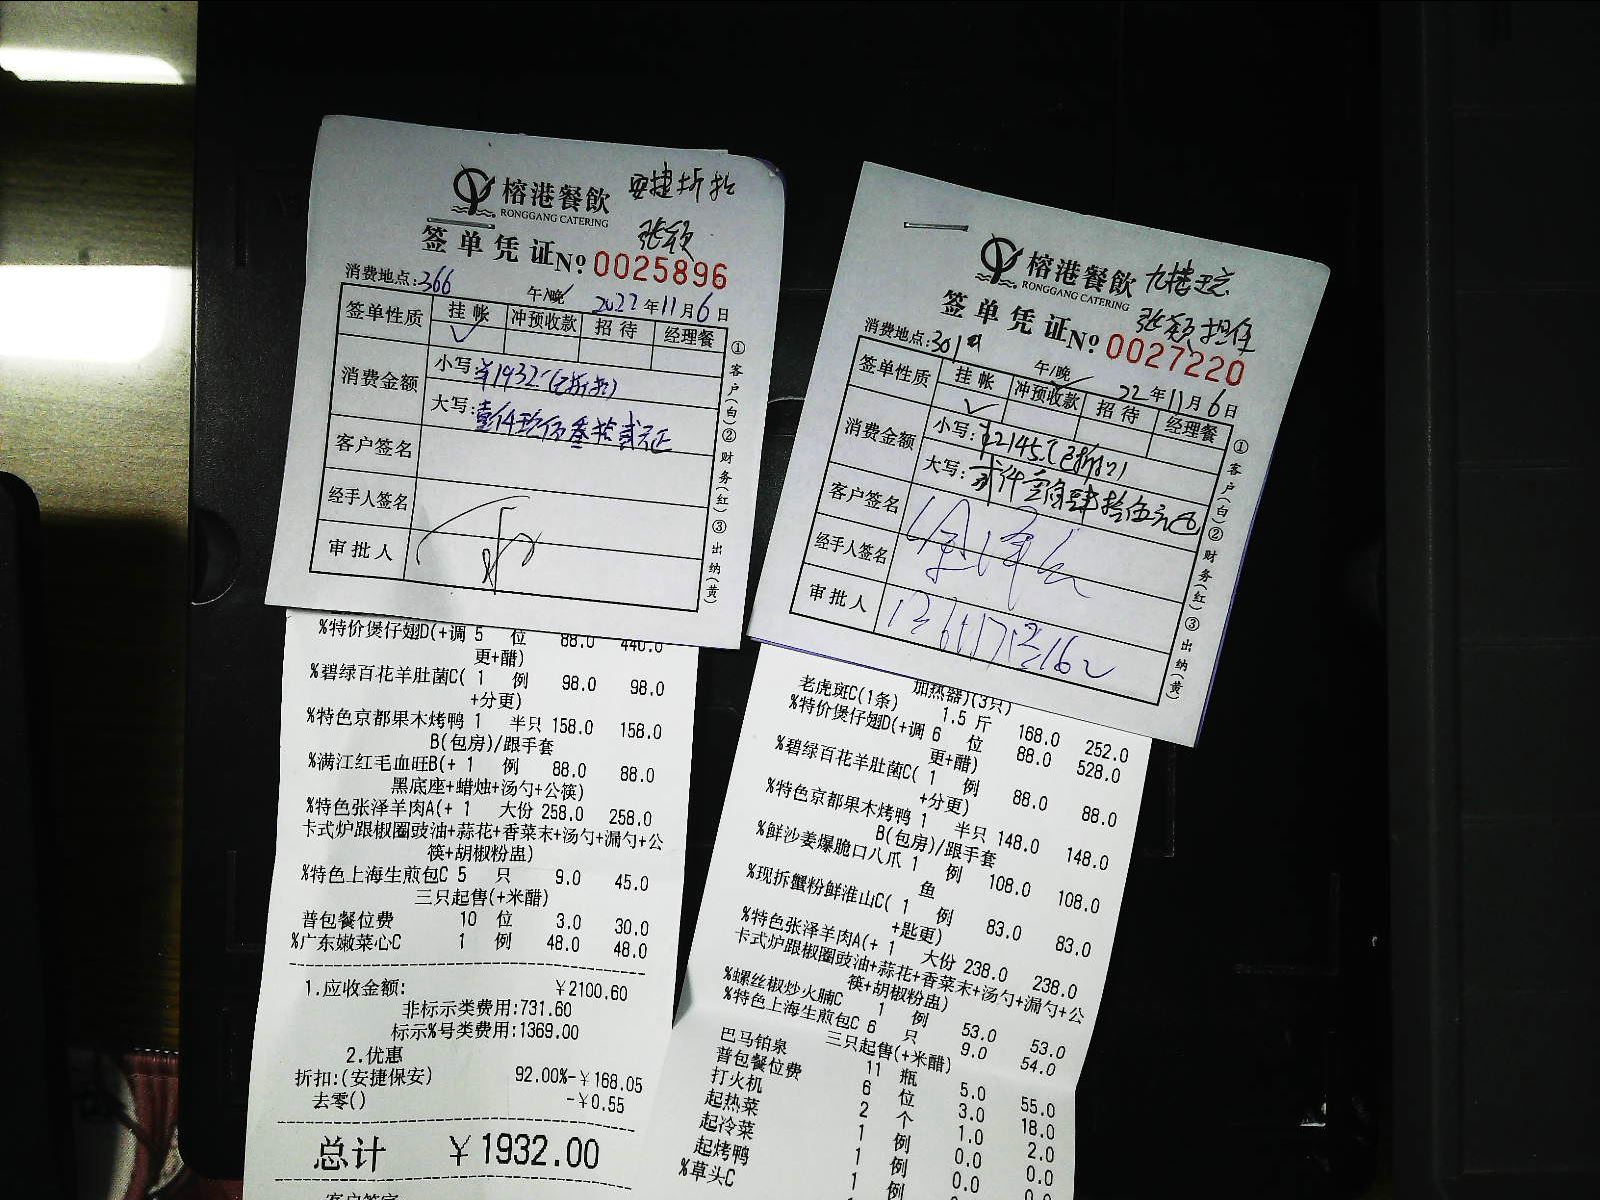 榕港餐飲 安捷折扣
RONGGANG CATERING
张颖
签单凭证 № 0025896
消费地点:366 午/晚 2022年11月6日
签单性质 挂帐 冲预收款 招待 经理餐
消费金额 小写:¥1932-(已折扣)
大写:壹仟玖佰叁拾贰元正
客户签名
经手人签名
审批人
①客户(白)②财务(红)③出纳(黄)
%特价煲仔翅D(+调 5 位 88.0 440.0
更+醋)
%碧绿百花羊肚菌C( 1 例 98.0 98.0
+分更)
%特色京都果木烤鸭 1 半只 158.0 158.0
B(包房)/跟手套
%满江红毛血旺B(+ 1 例 88.0 88.0
黑底座+蜡烛+汤勺+公筷)
%特色张泽羊肉A(+ 1 大份 258.0 258.0
卡式炉跟椒圈豉油+蒜花+香菜末+汤勺+漏勺+公
筷+胡椒粉盅)
%特色上海生煎包C 5 只 9.0 45.0
三只起售(+米醋)
普包餐位费 10 位 3.0 30.0
%广东嫩菜心C 1 例 48.0 48.0
1.应收金额: ¥2100.60
非标示类费用:731.60
标示%号类费用:1369.00
2.优惠
折扣:(安捷保安) 92.00%-¥168.05
去零() -¥0.55
总计 ¥1932.00
榕港餐飲
RONGGANG CATERING
张颖担任
签单凭证 № 0027220
消费地点:301 午/晚 22年11月6日
签单性质 挂帐 冲预收款 招待 经理餐
消费金额 小写:¥2145.(已折扣)
大写:贰仟壹佰肆拾伍元
客户签名
经手人签名
审批人
①客户(白)②财务(红)③出纳(黄)
加热器)(3只)
老虎斑C(1条) 1.5 斤 168.0 252.0
%特价煲仔翅D(+调 6 位 88.0 528.0
更+醋)
%碧绿百花羊肚菌C( 1 例 88.0 88.0
+分更)
%特色京都果木烤鸭 1 半只 148.0 148.0
B(包房)/跟手套
%鲜沙姜爆脆口八爪 1 例 108.0 108.0
鱼
%现拆蟹粉鲜淮山C( 1 例 83.0 83.0
+匙更)
%特色张泽羊肉A(+ 1 大份 238.0 238.0
卡式炉跟椒圈豉油+蒜花+香菜末+汤勺+漏勺+公
筷+胡椒粉盅)
%螺丝椒炒火腩C 1 例 53.0 53.0
%特色上海生煎包C 6 只 9.0 54.0
三只起售(+米醋)
巴马铂泉 11 瓶 5.0 55.0
普包餐位费 6 位 3.0 18.0
打火机 2 个 1.0 2.0
起热菜 1 例 0.0 0.0
起冷菜 1 例 0.0 0.0
起烤鸭 1 例 0.0
%草头C 1 例